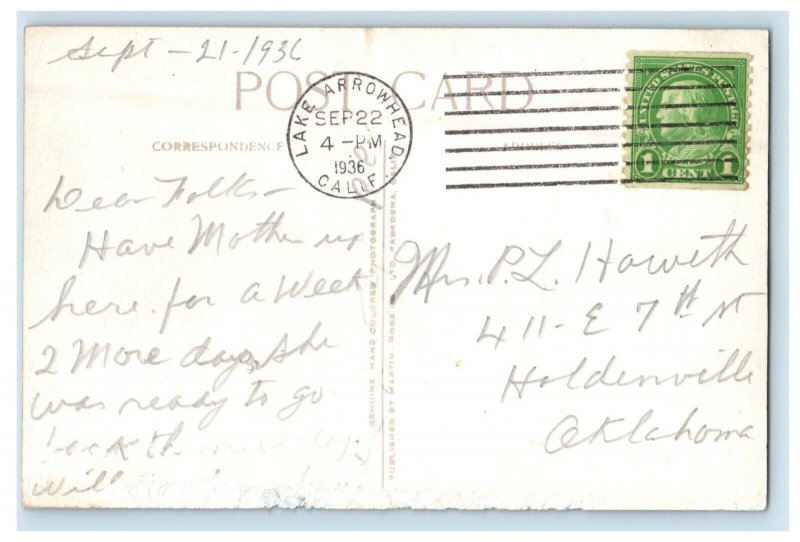 Sept - 21 - 1936
POST CARD
CORRESPONDENCE
LAKE ARROWHEAD
SEP 22
4 - PM
1936
CALIF.
UNITED STATES POSTAGE
1 1
CENT
Dear Folks -
Have Mother up
here for a Week
2 More days, she
was ready to go
back the next day.
Will
GENUINE HAND COLORED PHOTOGRAPH
PUBLISHED BY MARTIN, ROSS TO, PASADENA, CALIF
Mrs. P. L. Haweth
411 - E 7th St
Holdenville
Oklahoma